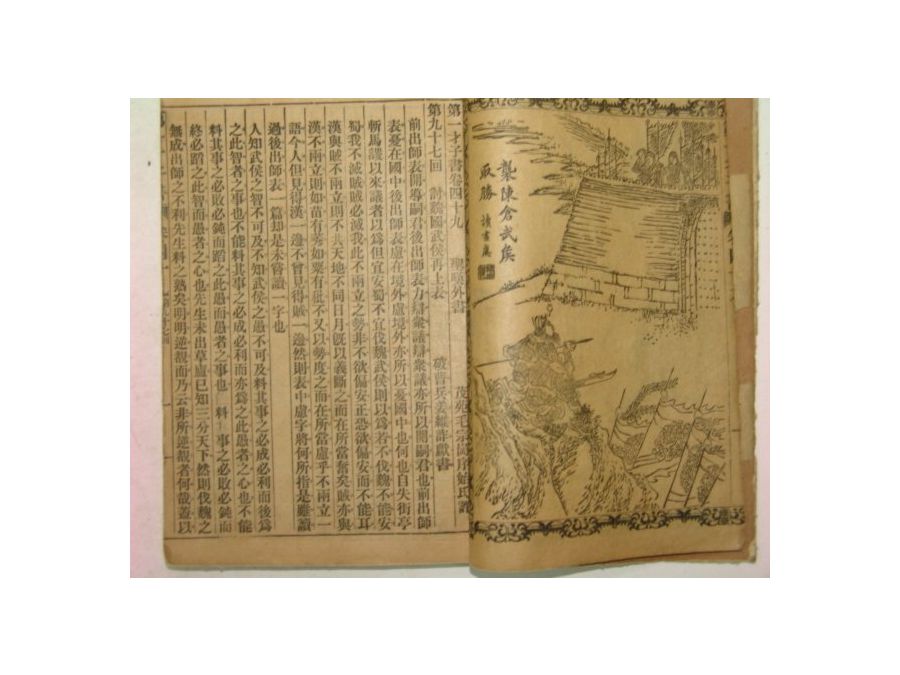 襲陳倉武矦
取勝
第一才子書卷四十九
聖嘆外書
茂苑毛宗崗序始氏
第九十七回
討魏國武侯再上表
破曹兵姜維詐獻書
前出師表開導嗣君後出師表力辯衆議辯衆議亦所以開嗣君也前出師
表憂在國中後出師表慮在境外慮境外亦所以憂國中也何也自失街亭
斬馬謖以來議者以爲但宜安蜀不宜伐魏武侯則以爲若不伐魏不能安
蜀我不滅賊賊必滅我此不兩立之勢非不欲偏安正恐欲偏安而不能耳
漢與賊不兩立則不共天地不同日月旣以義斷之而在所當奮矣賊亦與
漢不兩立則如苗有莠如粟有秕不又以勢度之而在所當慮乎不兩立一
語今人但見得漢一邊不曾見得賊一邊然則表中慮字將何所指是雖讀
過後出師表一篇却是未嘗讀一字也
人知武侯之智不可及不知武侯之愚不可及料其事之必成必利而後爲
之此智者之事也不能料其事之必成必利而亦爲之此愚者之心也不能
料其事之必敗必鈍而蹈之此愚者之事也料事之必敗必鈍而
終必蹈之此智而愚者之心也先生未出草廬已知三分天下然則伐魏之
無成出師之不利先生料之熟矣明明逆覩而乃云非所逆覩者何哉蓋以